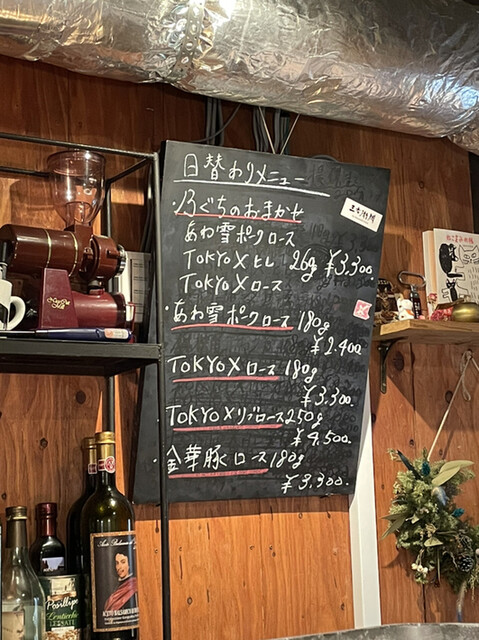 日替わりメニュー
・乃ぐちのおまかせ
あわ雪ポークロース
TOKYO X ヒレ 26g ¥3,300.
TOKYO X ロース
・あわ雪ポークロース 180g
¥2,400.
TOKYO X ロース 180g
¥3,300.
・TOKYO X リブロース 250g
¥4,500.
・金華豚ロース 180g
¥3,300.
Posillipo